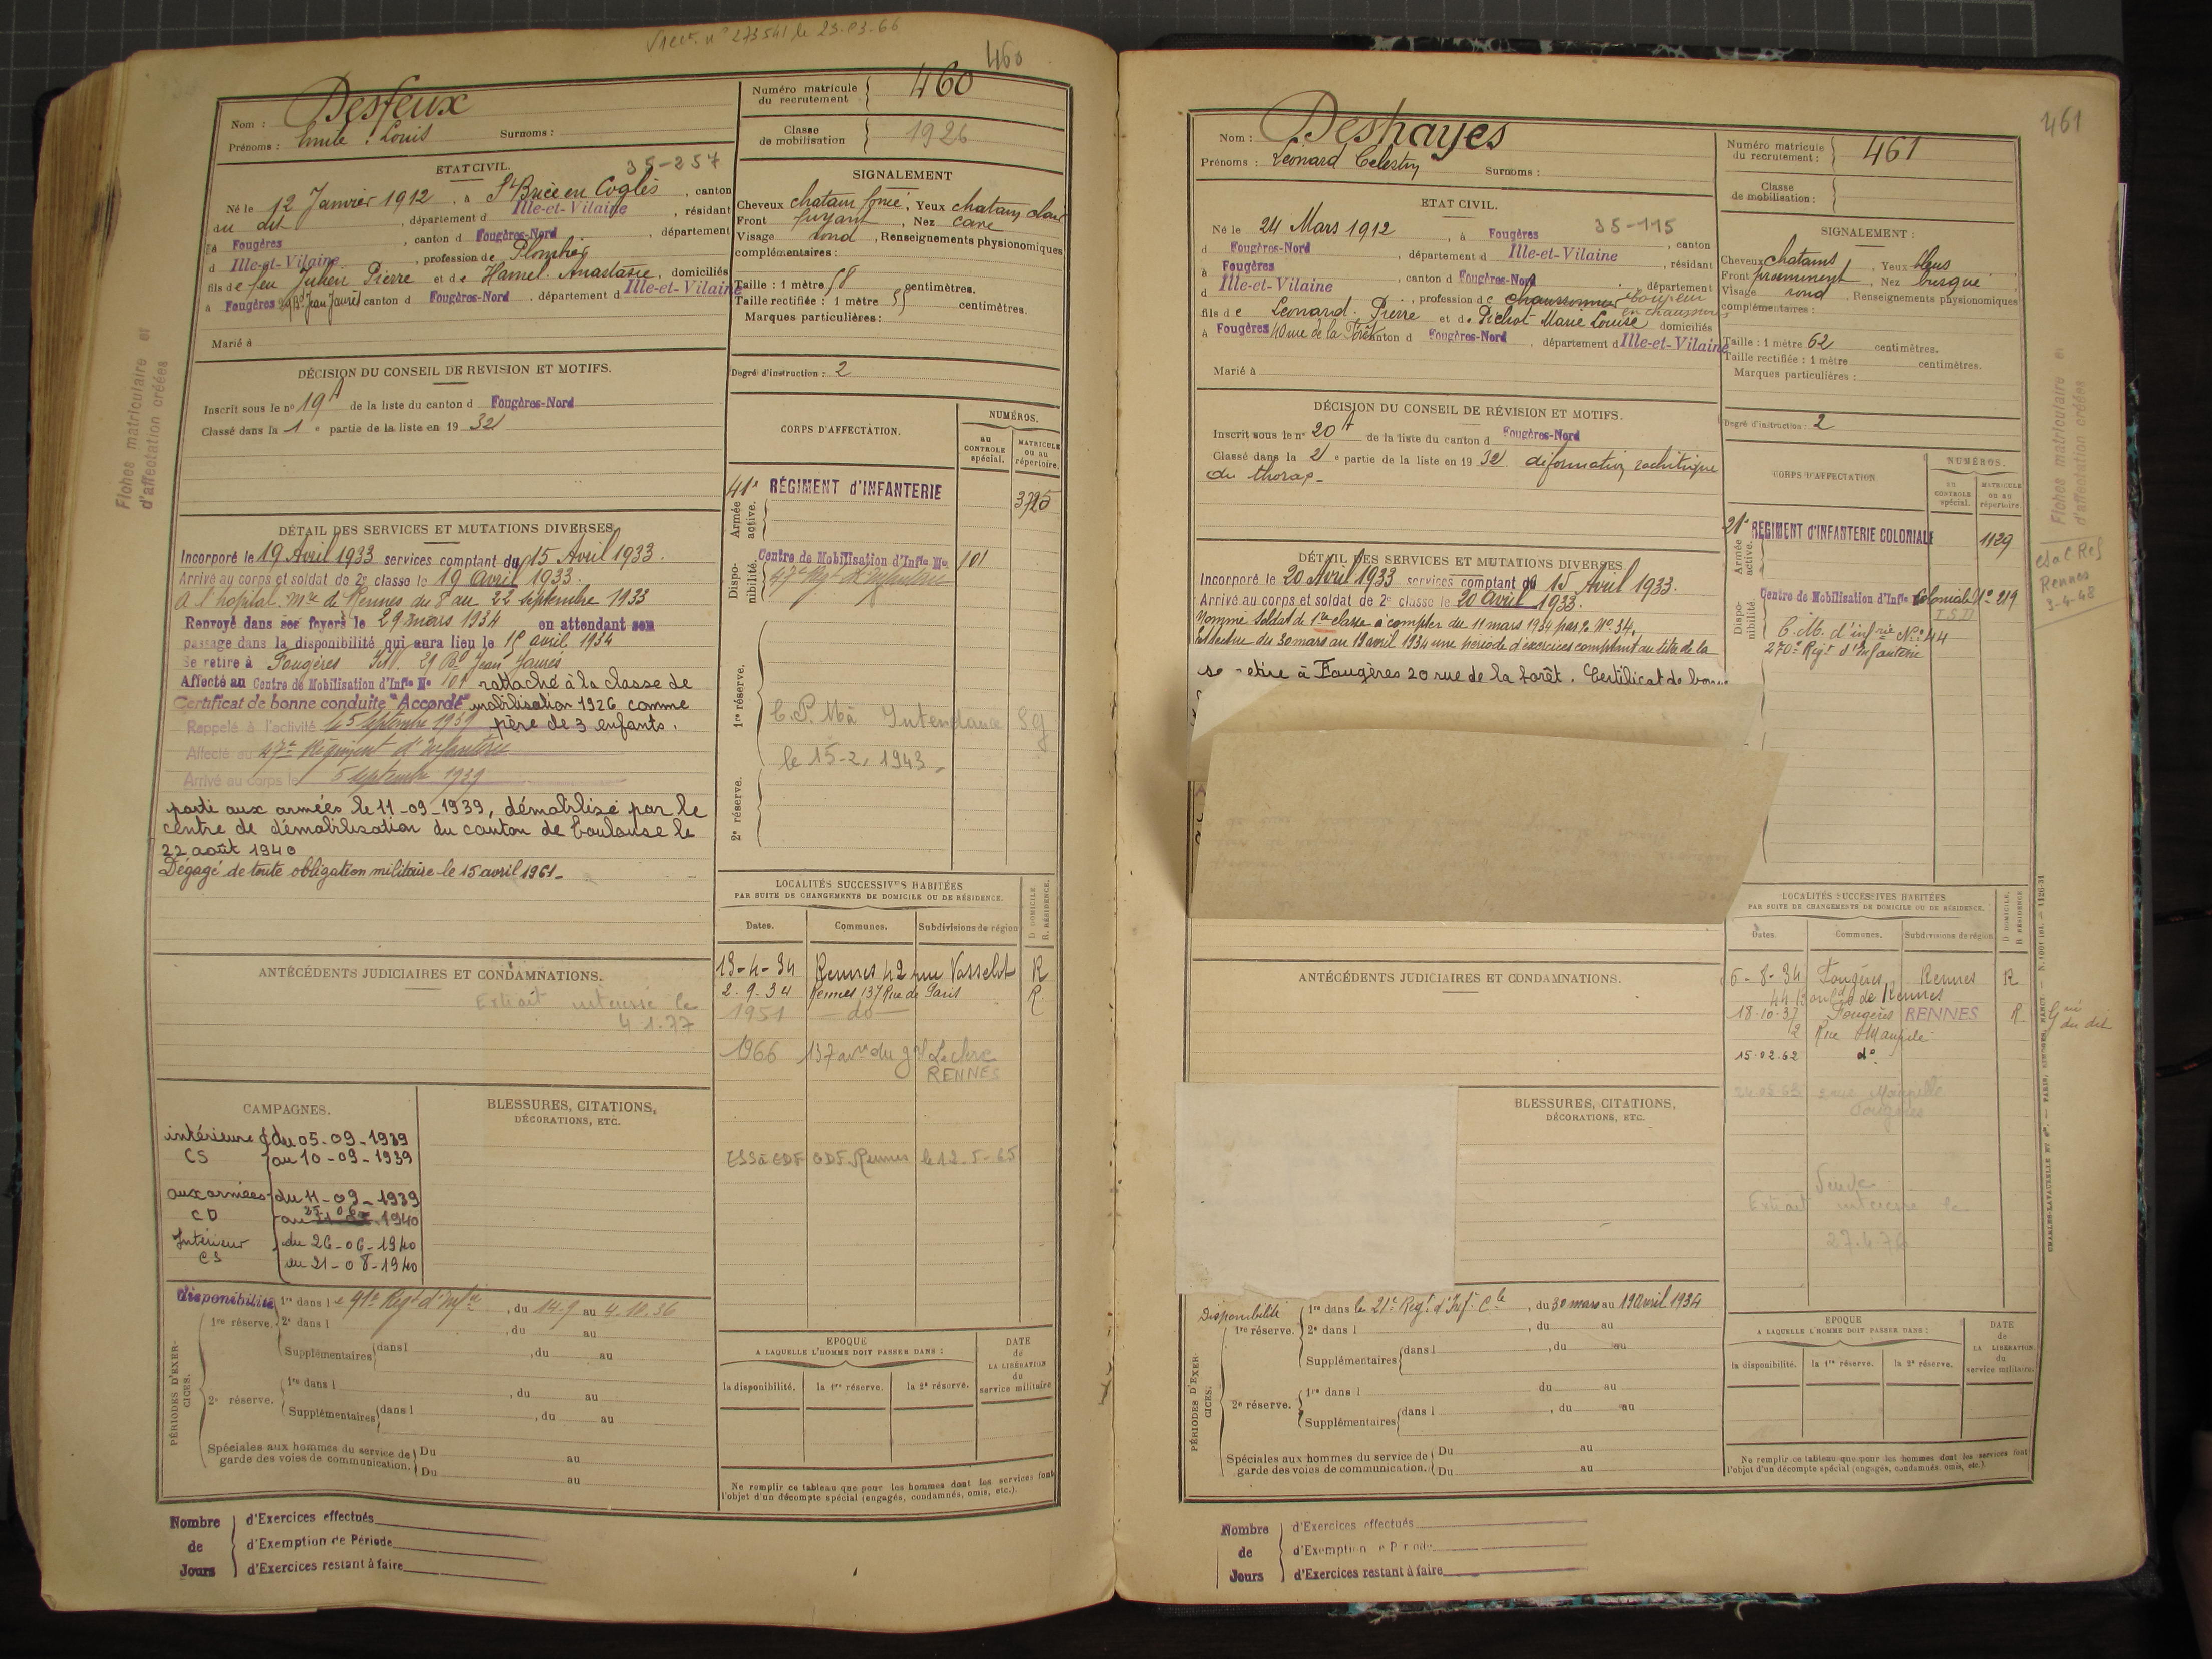 460
Nom : Desfeux
Prénoms : Emile Louis Surnoms :
Numéro matricule du recrutement 460
Classe de mobilisation 1926
ETAT CIVIL.
35-257
Né le 12 Janvier 1912, à St Brice en Coglès, canton
du dit, département d Ille-et-Vilaine, résidant
à Fougères, canton d Fougères-Nord, département
d Ille-et-Vilaine, profession de Plombier
fils de feu Julien Pierre et de Hamel Anastasie, domiciliés
à Fougères 29 Bd Jean Jaurès canton d Fougères-Nord, département d Ille-et-Vilaine
Marié à
SIGNALEMENT
Cheveux chatain foncé, Yeux chatain clair
Front fuyant, Nez cave
Visage rond, Renseignements physionomiques
complémentaires :
Taille : 1 mètre 58 centimètres.
Taille rectifiée : 1 mètre 55 centimètres.
Marques particulières :
Degré d'instruction : 2
DÉCISION DU CONSEIL DE REVISION ET MOTIFS.
Inscrit sous le n° 19 A de la liste du canton d Fougères-Nord
Classé dans la 1e partie de la liste en 1932
Fiches matriculaire et
d'affectation créées
DÉTAIL DES SERVICES ET MUTATIONS DIVERSES.
Incorporé le 19 Avril 1933 services comptant du 15 Avril 1933.
Arrivé au corps et soldat de 2e classe le 19 Avril 1933.
A l'hopital Mre de Rennes du 8 au 22 Septembre 1933
Renvoyé dans ses foyers le 29 mars 1934 en attendant son
passage dans la disponibilité qui aura lieu le 15 avril 1934
Se retire à Fougères I&V. 29 Bd Jean Jaurès
Affecté au Centre de Mobilisation d'Infie N° 101 rattaché à la classe de
Certificat de bonne conduite "Accordé" mobilisation 1926 comme
Rappelé à l'activité le 5 Septembre 1939 père de 3 enfants.
Affecté au 47e Régiment d'Infanterie
Arrivé au corps le 5 septembre 1939
parti aux armées le 11-09-1939, démobilisé par le
centre de démobilisation du canton de Toulouse le
22 août 1940
Dégagé de toute obligation militaire le 15 avril 1961.
CORPS D'AFFECTATION.
NUMÉROS.
AU CONTROLE spécial.
MATRICULE ou au répertoire.
Armée active.
41e RÉGIMENT d'INFANTERIE 3725
Disponibilité.
Centre de Mobilisation d'Infie N° 101
47e Rgt d'Infanterie
1re réserve.
C.P. Mà Intendance
le 15-2-1943
2e réserve.
ANTÉCÉDENTS JUDICIAIRES ET CONDAMNATIONS.
Extrait intéressé le
4.1.77
LOCALITÉS SUCCESSIVES HABITÉES
PAR SUITE DE CHANGEMENTS DE DOMICILE OU DE RÉSIDENCE.
D. DOMICILE. R. RÉSIDENCE.
Dates. Communes. Subdivisions de région
13-4-34 Rennes 42 rue Vasselot R
2.9.34 Rennes 137 Rue de Paris R.
1951 do
1966 137 avue du gal Leclerc
RENNES
ODF Rennes le 12-5-65
CAMPAGNES.
intérieure CS du 05-09-1939
au 10-09-1939
aux armées CD du 11-09-1939
au 25-06 1940
Intérieur CS du 26-06-1940
au 21-08-1940
BLESSURES, CITATIONS,
DÉCORATIONS, ETC.
PÉRIODES D'EXERCICES.
Disponibilité
1re réserve. 1re dans le 41e Regt d'Infie, du 14-9 au 4.10.36
2e dans l , du au
Supplémentaires dans l , du au
2e réserve. 1re dans l , du au
Supplémentaires dans l , du au
Spéciales aux hommes du service de garde des voies de communication. Du au
Du au
EPOQUE
A LAQUELLE L'HOMME DOIT PASSER DANS :
la disponibilité. la 1re réserve. la 2e réserve.
DATE de LA LIBÉRATION du service militaire
Ne remplir ce tableau que pour les hommes dont les services font
l'objet d'un décompte spécial (engagés, condamnés, omis, etc.).
Nombre de Jours
d'Exercices effectués
d'Exemption de Période
d'Exercices restant à faire
461
Nom : Deshayes
Prénoms : Léonard Célestin Surnoms :
Numéro matricule du recrutement : 461
Classe de mobilisation :
ETAT CIVIL.
Né le 24 Mars 1912, à Fougères 35-115
d Fougères-Nord, département d Ille-et-Vilaine, canton
à Fougères, résidant
d Ille-et-Vilaine, canton d Fougères-Nord, département
, profession de chaussonnier coupeur en chaussures
fils de Léonard Pierre et de Pichot Marie Louise domiciliés
à Fougères 40 rue de la Forêt canton d Fougères-Nord, département d Ille-et-Vilaine
Marié à
SIGNALEMENT :
Cheveux chatains, Yeux bleus
Front proéminent, Nez busqué
Visage rond, Renseignements physionomiques
complémentaires :
Taille : 1 mètre 62 centimètres.
Taille rectifiée : 1 mètre centimètres.
Marques particulières :
Degré d'instruction : 2
DÉCISION DU CONSEIL DE RÉVISION ET MOTIFS.
Inscrit sous le n° 20 A de la liste du canton d Fougères-Nord
Classé dans la 2e partie de la liste en 1932 déformation rachitique
du thorax
Fiches matriculaire et
d'affectation créées
Rennes
3-4-48
DÉTAIL DES SERVICES ET MUTATIONS DIVERSES
Incorporé le 20 Avril 1933 services comptant du 15 Avril 1933.
Arrivé au corps et soldat de 2e classe le 20 Avril 1933.
Nommé soldat de 1re classe à compter du 11 mars 1934 par O. N° 34.
effectue du 30 mars au 19 avril 1934 une période d'exercices comptant au titre de la
se retire à Fougères 20 rue de la forêt. Certificat de bonne
CORPS D'AFFECTATION
NUMÉROS.
AU CONTROLE spécial.
MATRICULE ou au répertoire.
Armée active.
21e RÉGIMENT D'INFANTERIE COLONIALE 1129
Disponibilité.
Centre de Mobilisation d'Infie Coloniale N° 219
C.M. d'infrie N° 44
270e Régt d'Infanterie
ANTÉCÉDENTS JUDICIAIRES ET CONDAMNATIONS.
LOCALITÉS SUCCESSIVES HABITÉES
PAR SUITE DE CHANGEMENTS DE DOMICILE OU DE RÉSIDENCE.
D. DOMICILE. R. RÉSIDENCE
Dates. Communes. Subdivisions de région
6-8-34 Fougères Rennes R
44 Bould de Rennes
18-10-37 Fougères RENNES R.
2 Rue
15-02-62 do
Fougères
Extrait intéressé le
BLESSURES, CITATIONS,
DÉCORATIONS, ETC.
PÉRIODES D'EXERCICES.
Disponibilité
1re réserve. 1re dans le 21e Regt d'Inf. Cle, du 30 mars au 19 avril 1934
2e dans l , du au
Supplémentaires dans l , du au
2e réserve. 1re dans l du au
Supplémentaires dans l , du au
Spéciales aux hommes du service de garde des voies de communication. Du au
Du au
EPOQUE
A LAQUELLE L'HOMME DOIT PASSER DANS :
la disponibilité. la 1re réserve. la 2e réserve.
DATE de LA LIBÉRATION du service militaire
Ne remplir ce tableau que pour les hommes dont les services font
l'objet d'un décompte spécial (engagés, condamnés, omis, etc.).
Nombre de Jours
d'Exercices effectués
d'Exemption de Période
d'Exercices restant à faire